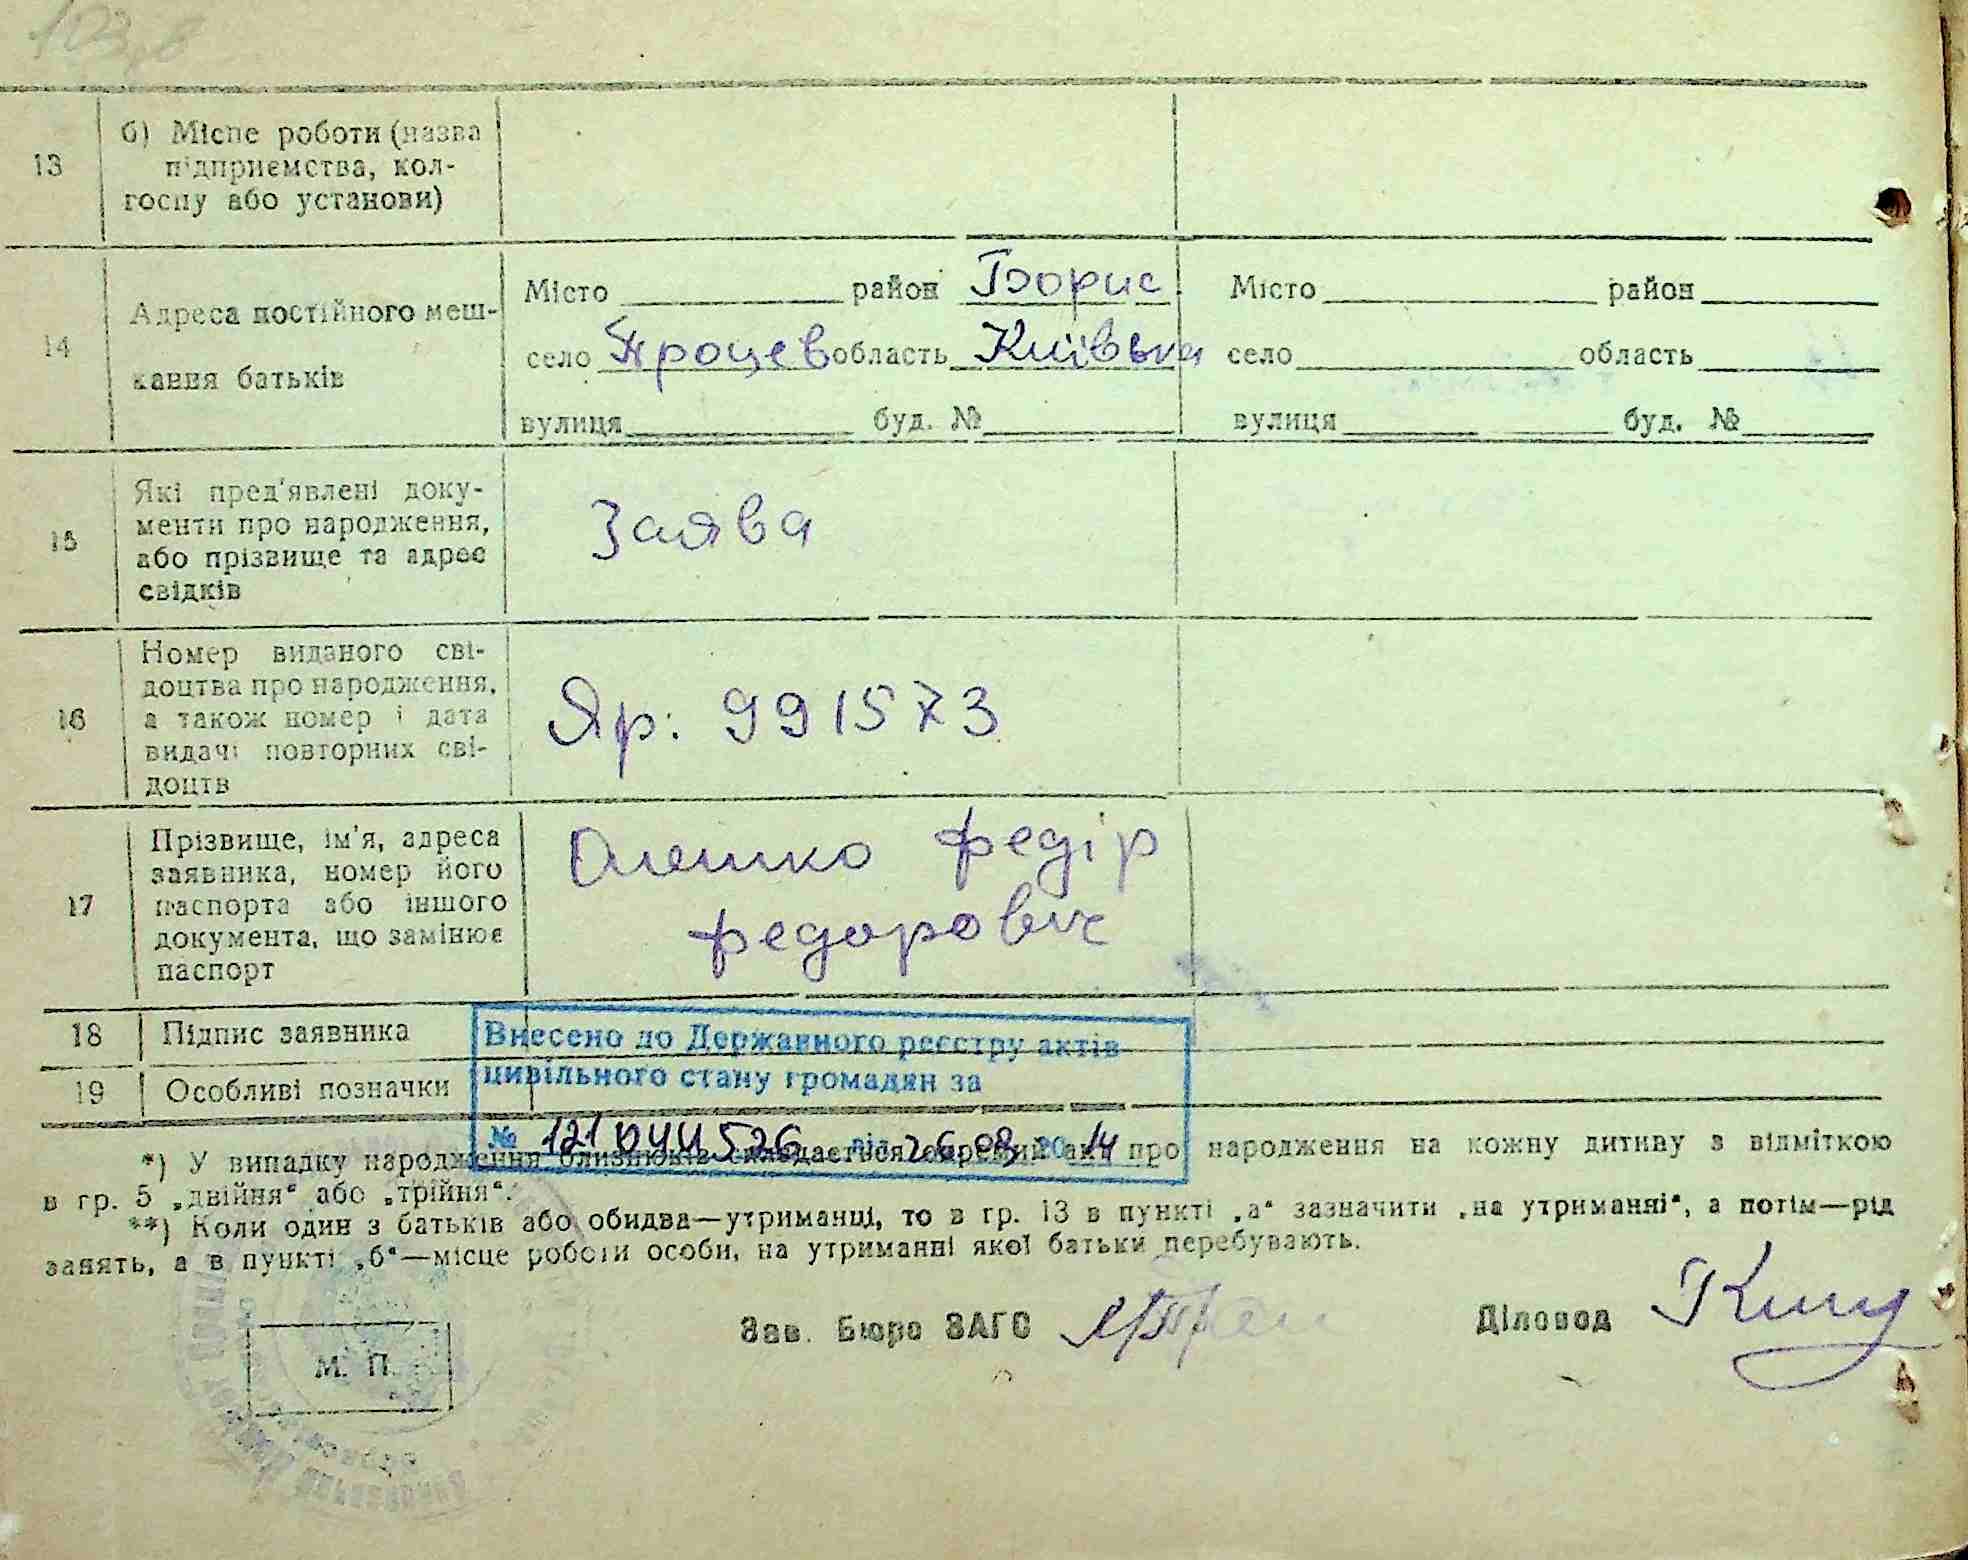 13 б) Місце роботи (назва
підприємства, кол-
госпу або установи)
14 Адреса постійного меш-
кання батьків
Місто район Борис Місто район
село Процев область Київська село область
вулиця буд. № вулиця буд. №
15 Які пред'явлені доку-
менти про народження,
або прізвище та адрес
свідків
Заява
16 Номер виданого сві-
доцтва про народження,
а також номер і дата
видачі повторних сві-
доцтв
Яр: 991573
17 Прізвище, ім'я, адреса
заявника, номер його
паспорта або іншого
документа, що замінює
паспорт
Олешко Федір
Федорович
18 Підпис заявника
19 Особливі позначки
Внесено до Державного реєстру актів
цивільного стану громадян за
№ від 26 08 2014
*) У випадку народження близнюків складається окремий акт про народження на кожну дитину з відміткою
в гр. 5 „двійня“ або „трійня“.
**) Коли один з батьків або обидва—утриманці, то в гр. 13 в пункті „а“ зазначити „на утриманні“, а потім—рід
занять, а в пункті „б“—місце роботи особи, на утриманні якої батьки перебувають.
Зав. Бюро ЗАГС Діловод
М. П.